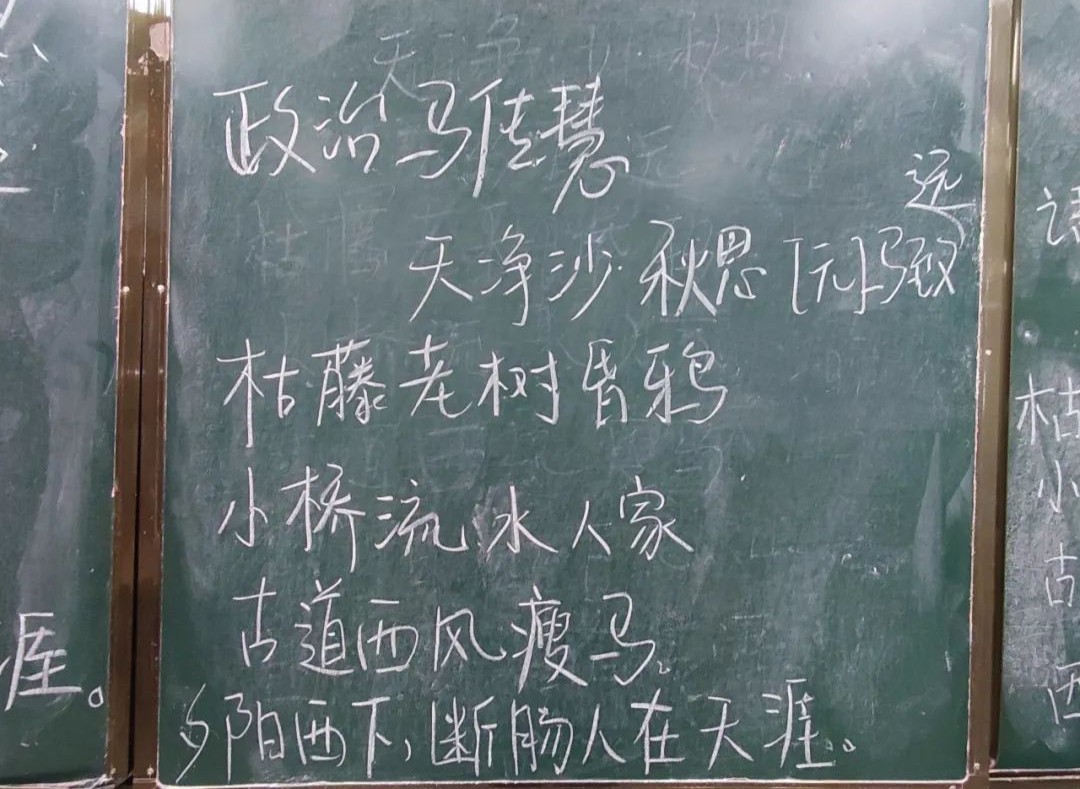 政治马佳慧
天净沙 秋思 [元]马致远
枯藤老树昏鸦
小桥流水人家
古道西风瘦马。
夕阳西下,断肠人在天涯。
涯。
枯
小
古
西